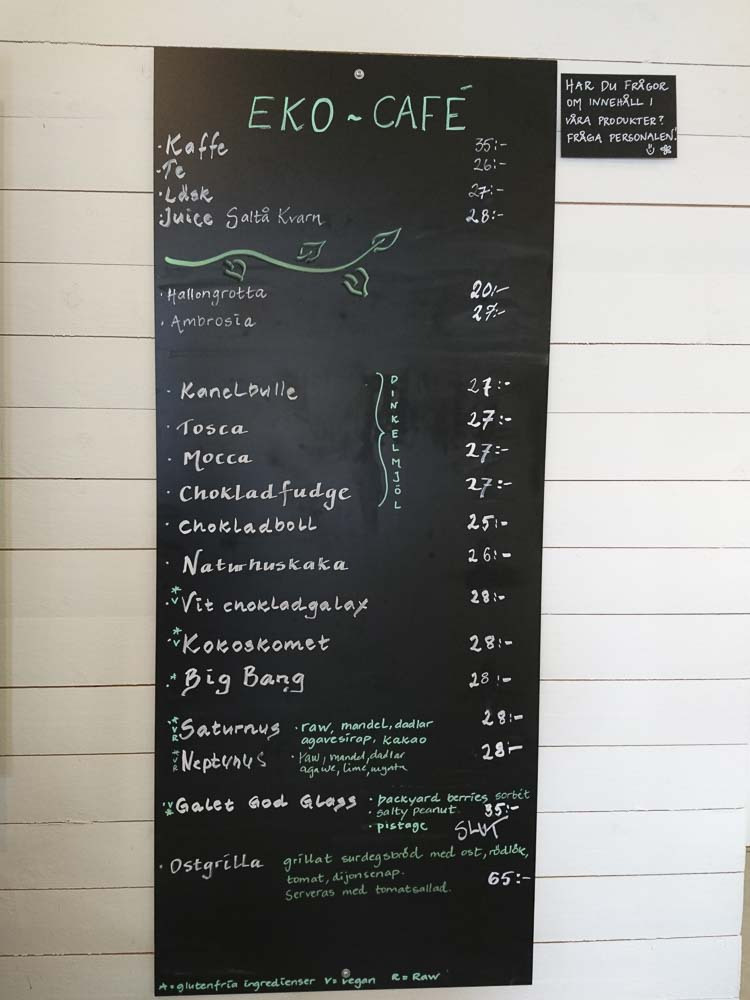 EKO ~ CAFÉ
HAR DU FRÅGOR
OM INNEHÅLL I
VÅRA PRODUKTER?
FRÅGA PERSONALEN!
· Kaffe 35:-
· Te 26:-
· Läsk 27:-
· Juice Saltå Kvarn 28:-
· Hallongrotta 20:-
· Ambrosia 27:-
· Kanelbulle 27:-
· Tosca 27:-
· Mocca 27:-
· Chokladfudge 27:-
DINKELMJÖL
· Chokladboll 25:-
· Naturhuskaka 26:-
* V · Vit chokladgalax 28:-
* V · Kokoskomet 28:-
* · Big Bang 28:-
* V R · Saturnus · raw, mandel, dadlar 28:-
agavesirap, kakao
* V R · Neptunus · raw, mandel, dadlar 28:-
agave, lime, mynta
V * · Galet God Glass · backyard berries sorbet
· salty peanut 35:-
· pistage SLUT
· Ostgrilla grillat surdegsbröd med ost, rödlök,
tomat, dijonsenap. 65:-
Serveras med tomatsallad.
* = glutenfria ingredienser V = vegan R = Raw